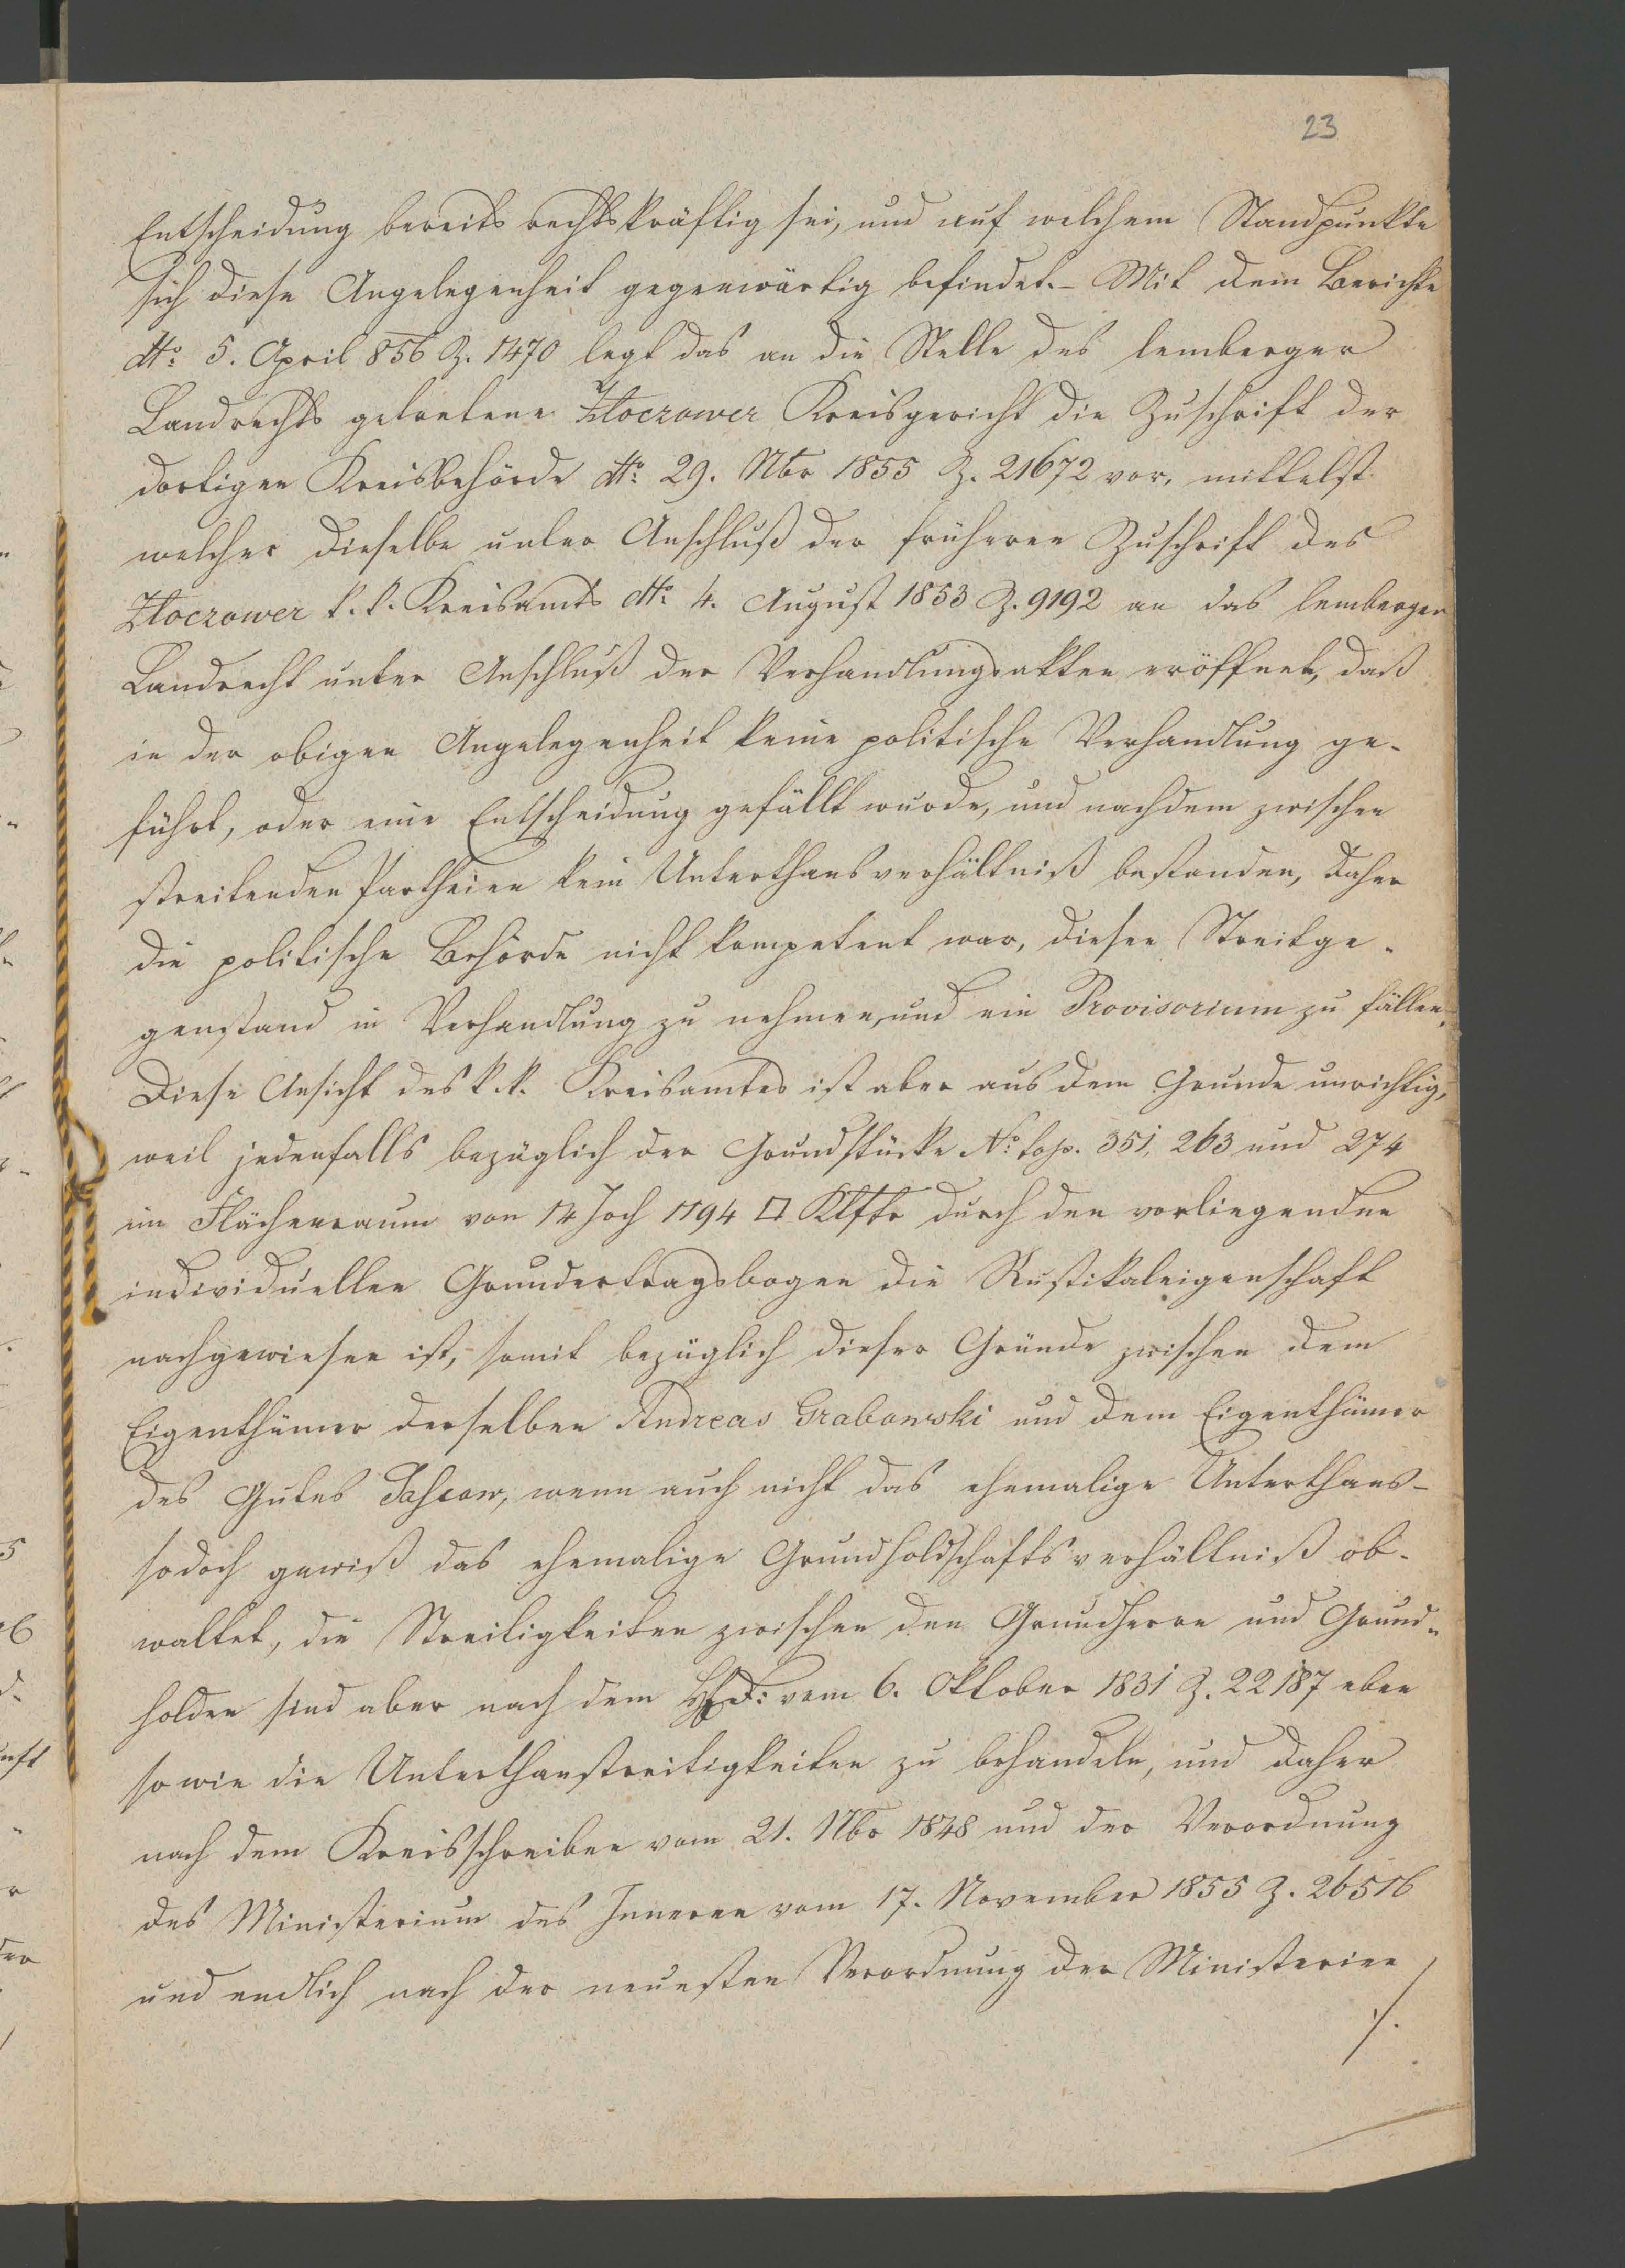 23
Entscheidung bereits rechtskräftig sei, und auf welchem Standpunkte
sich diese Angelegenheit gegenwärtig befindet. – Mit dem Berichte
dto. 5. April 856 Z. 1470 legt das an die Stelle des lemberger
Landrechts getretene Złoczower Kreisgericht die Zuschrift der
dortigen Kreisbehörde dto. 29. Nbr 1855 Z. 21672 vor, mittelst
welcher dieselbe unter Anschluß der früheren Zuschrift des
Złoczower k. k. Kreisamts dto. 4. August 1853 Z. 9192 an das lemberger
Landrecht unter Anschluß der Verhandlungsakten eröffnet, daß
in der obigen Angelegenheit keine politische Verhandlung ge-
führt, oder eine Entscheidung gefällt wurde, und nachdem zwischen
streitenden Partheien kein Unterthansverhältniß bestanden, daher
die politische Behörde nicht kompetent war, diesen Streitge-
genstand in Verhandlung zu nehmen, und ein Provisorium zu fällen.
Diese Ansicht des k. k. Kreisamtes ist aber aus dem Grunde unrichtig,
weil jedenfalls bezüglich der Grundstücke No. top. 351, 263 und 274
im Flächenraum von 14 Joch 1194 □ Klftr durch den vorliegenden
individuellen Grundertragsbogen die Rustikaleigenschaft
nachgewiesen ist, somit bezüglich dieser Gründe zwischen dem
Eigenthümer derselben Andreas Grabowski und dem Eigenthümer
des Gutes, wenn auch nicht das ehemalige Unterthans-
so doch gewiß das ehemalige Grundholdschaftsverhältniß ob-
waltet, die Streitigkeiten zwischen den Grundherrn und Grund-
holden sind aber nach dem HfD: vom 6. Oktober 1831 Z. 22187 eben
so wie die Unterthanstreitigkeiten zu behandeln, und daher
nach dem Kreisschreiben vom 21. Nbr 1848 und der Verordnung
des Ministerium des Inneren vom 17. November 1855 Z. 26516
und endlich nach der neuesten Verordnung der Ministerien
./.